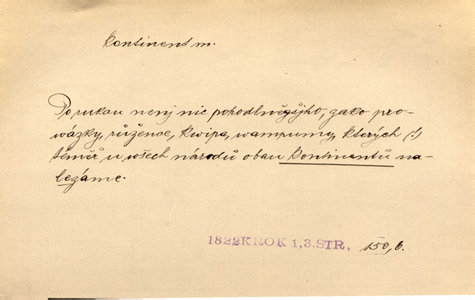 kontinent m.
Po rukau nený nic pohodlněgšjho, gako pro-
wázky, růžence, kwipa, wampumy, kterých (:)
téměř u wšech národů obau kontinentů na-
lezáme.
1822 KROK 1,3. STR. 150, b.